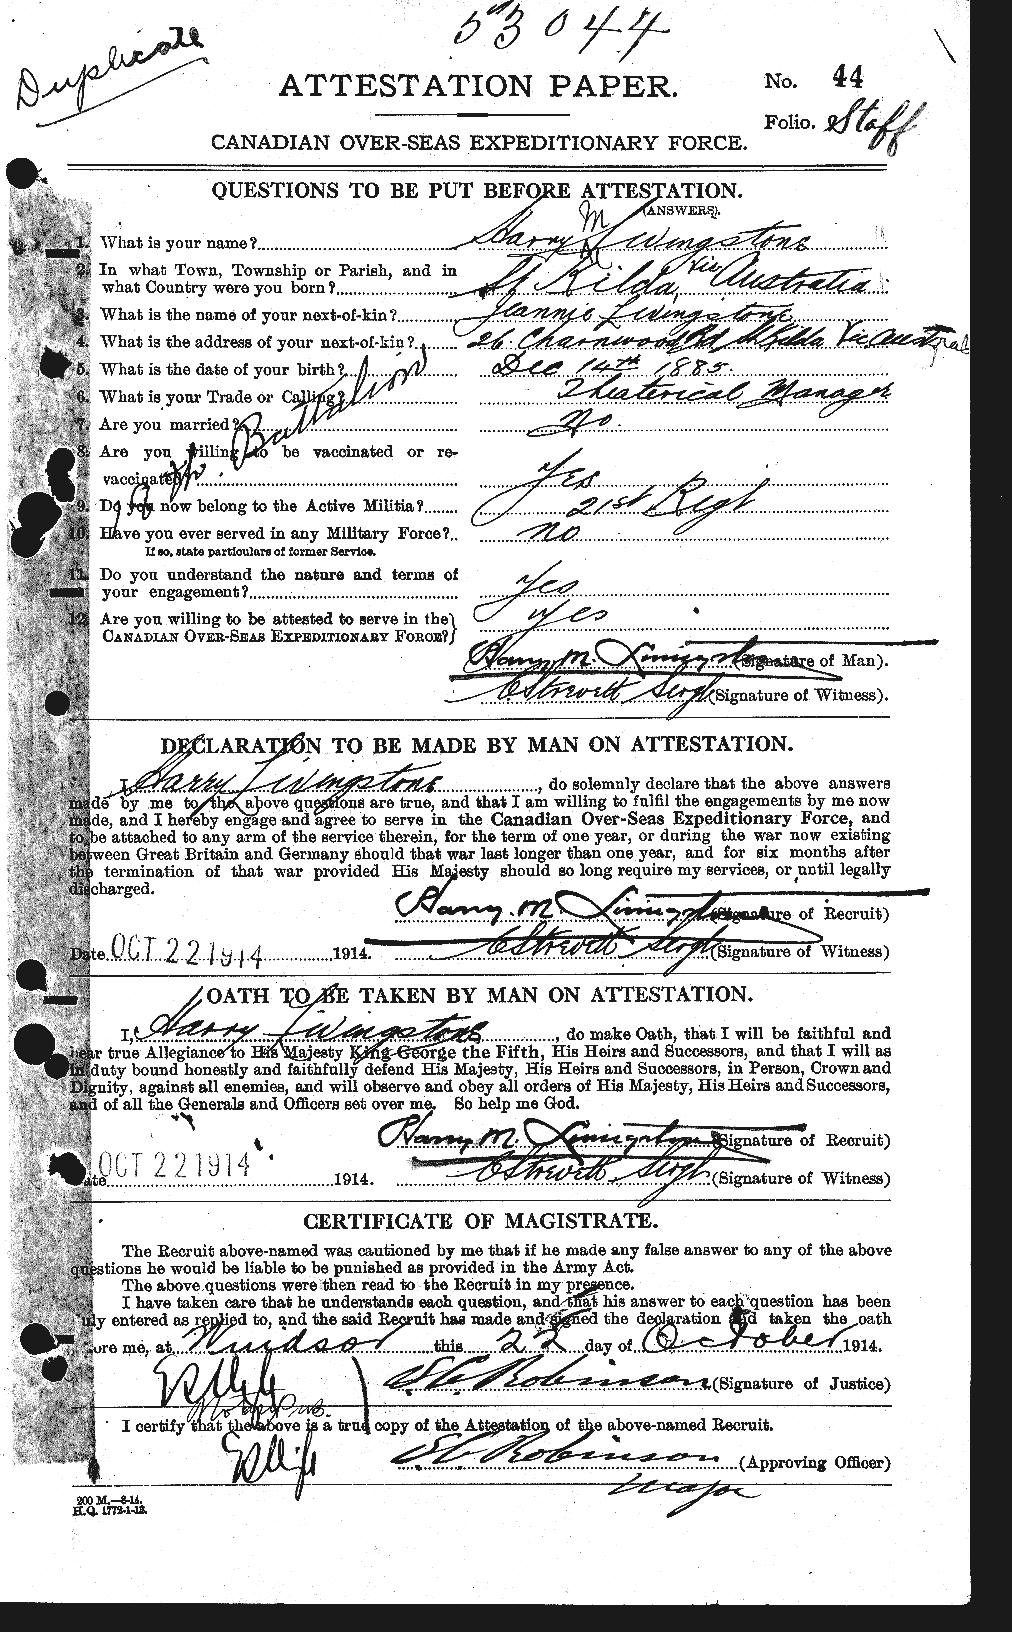 53044
Duplicate
ATTESTATION PAPER.
No. 44
Folio. Staff
CANADIAN OVER-SEAS EXPEDITIONARY FORCE.
QUESTIONS TO BE PUT BEFORE ATTESTATION.
(ANSWERS).
1. What is your name? Harry M Livingstone
2. In what Town, Township or Parish, and in
what Country were you born? St Kilda, Vic Australia
3. What is the name of your next-of-kin? Jeannie Livingstone
4. What is the address of your next-of-kin? 26 Charnwood Rd St Kilda Vic Austral
5. What is the date of your birth? Dec 14th 1885.
6. What is your Trade or Calling? Theaterical Manager
7. Are you married? No.
8. Are you willing to be vaccinated or re-
vaccinated? Yes
9. Do you now belong to the Active Militia? 21st Regt
10. Have you ever served in any Military Force? no
If so, state particulars of former Service.
11. Do you understand the nature and terms of
your engagement? Yes
12. Are you willing to be attested to serve in the
CANADIAN OVER-SEAS EXPEDITIONARY FORCE? Yes
18th Battalion
Harry M. Livingstone (Signature of Man).
Sergt (Signature of Witness).
DECLARATION TO BE MADE BY MAN ON ATTESTATION.
I, Harry Livingstone, do solemnly declare that the above answers
made by me to the above questions are true, and that I am willing to fulfil the engagements by me now
made, and I hereby engage and agree to serve in the Canadian Over-Seas Expeditionary Force, and
to be attached to any arm of the service therein, for the term of one year, or during the war now existing
between Great Britain and Germany should that war last longer than one year, and for six months after
the termination of that war provided His Majesty should so long require my services, or until legally
discharged.
Harry. M. Livingstone (Signature of Recruit)
Date. OCT 22 1914 1914. Sergt (Signature of Witness)
OATH TO BE TAKEN BY MAN ON ATTESTATION.
I, Harry Livingstone, do make Oath, that I will be faithful and
bear true Allegiance to His Majesty King George the Fifth, His Heirs and Successors, and that I will as
in duty bound honestly and faithfully defend His Majesty, His Heirs and Successors, in Person, Crown and
Dignity, against all enemies, and will observe and obey all orders of His Majesty, His Heirs and Successors,
and of all the Generals and Officers set over me. So help me God.
Harry M. Livingstone (Signature of Recruit)
Date OCT 22 1914 1914. Sergt. (Signature of Witness)
CERTIFICATE OF MAGISTRATE.
The Recruit above-named was cautioned by me that if he made any false answer to any of the above
questions he would be liable to be punished as provided in the Army Act.
The above questions were then read to the Recruit in my presence.
I have taken care that he understands each question, and that his answer to each question has been
duly entered as replied to, and the said Recruit has made and signed the declaration and taken the oath
before me, at Windsor this 22 day of October 1914.
Robinson (Signature of Justice)
I certify that the above is a true copy of the Attestation of the above-named Recruit.
Robinson (Approving Officer)
Major
200 M.—8-14.
H.Q. 1772-1-13.